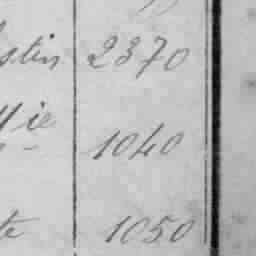 stin 2370
ie 1040
te 1050